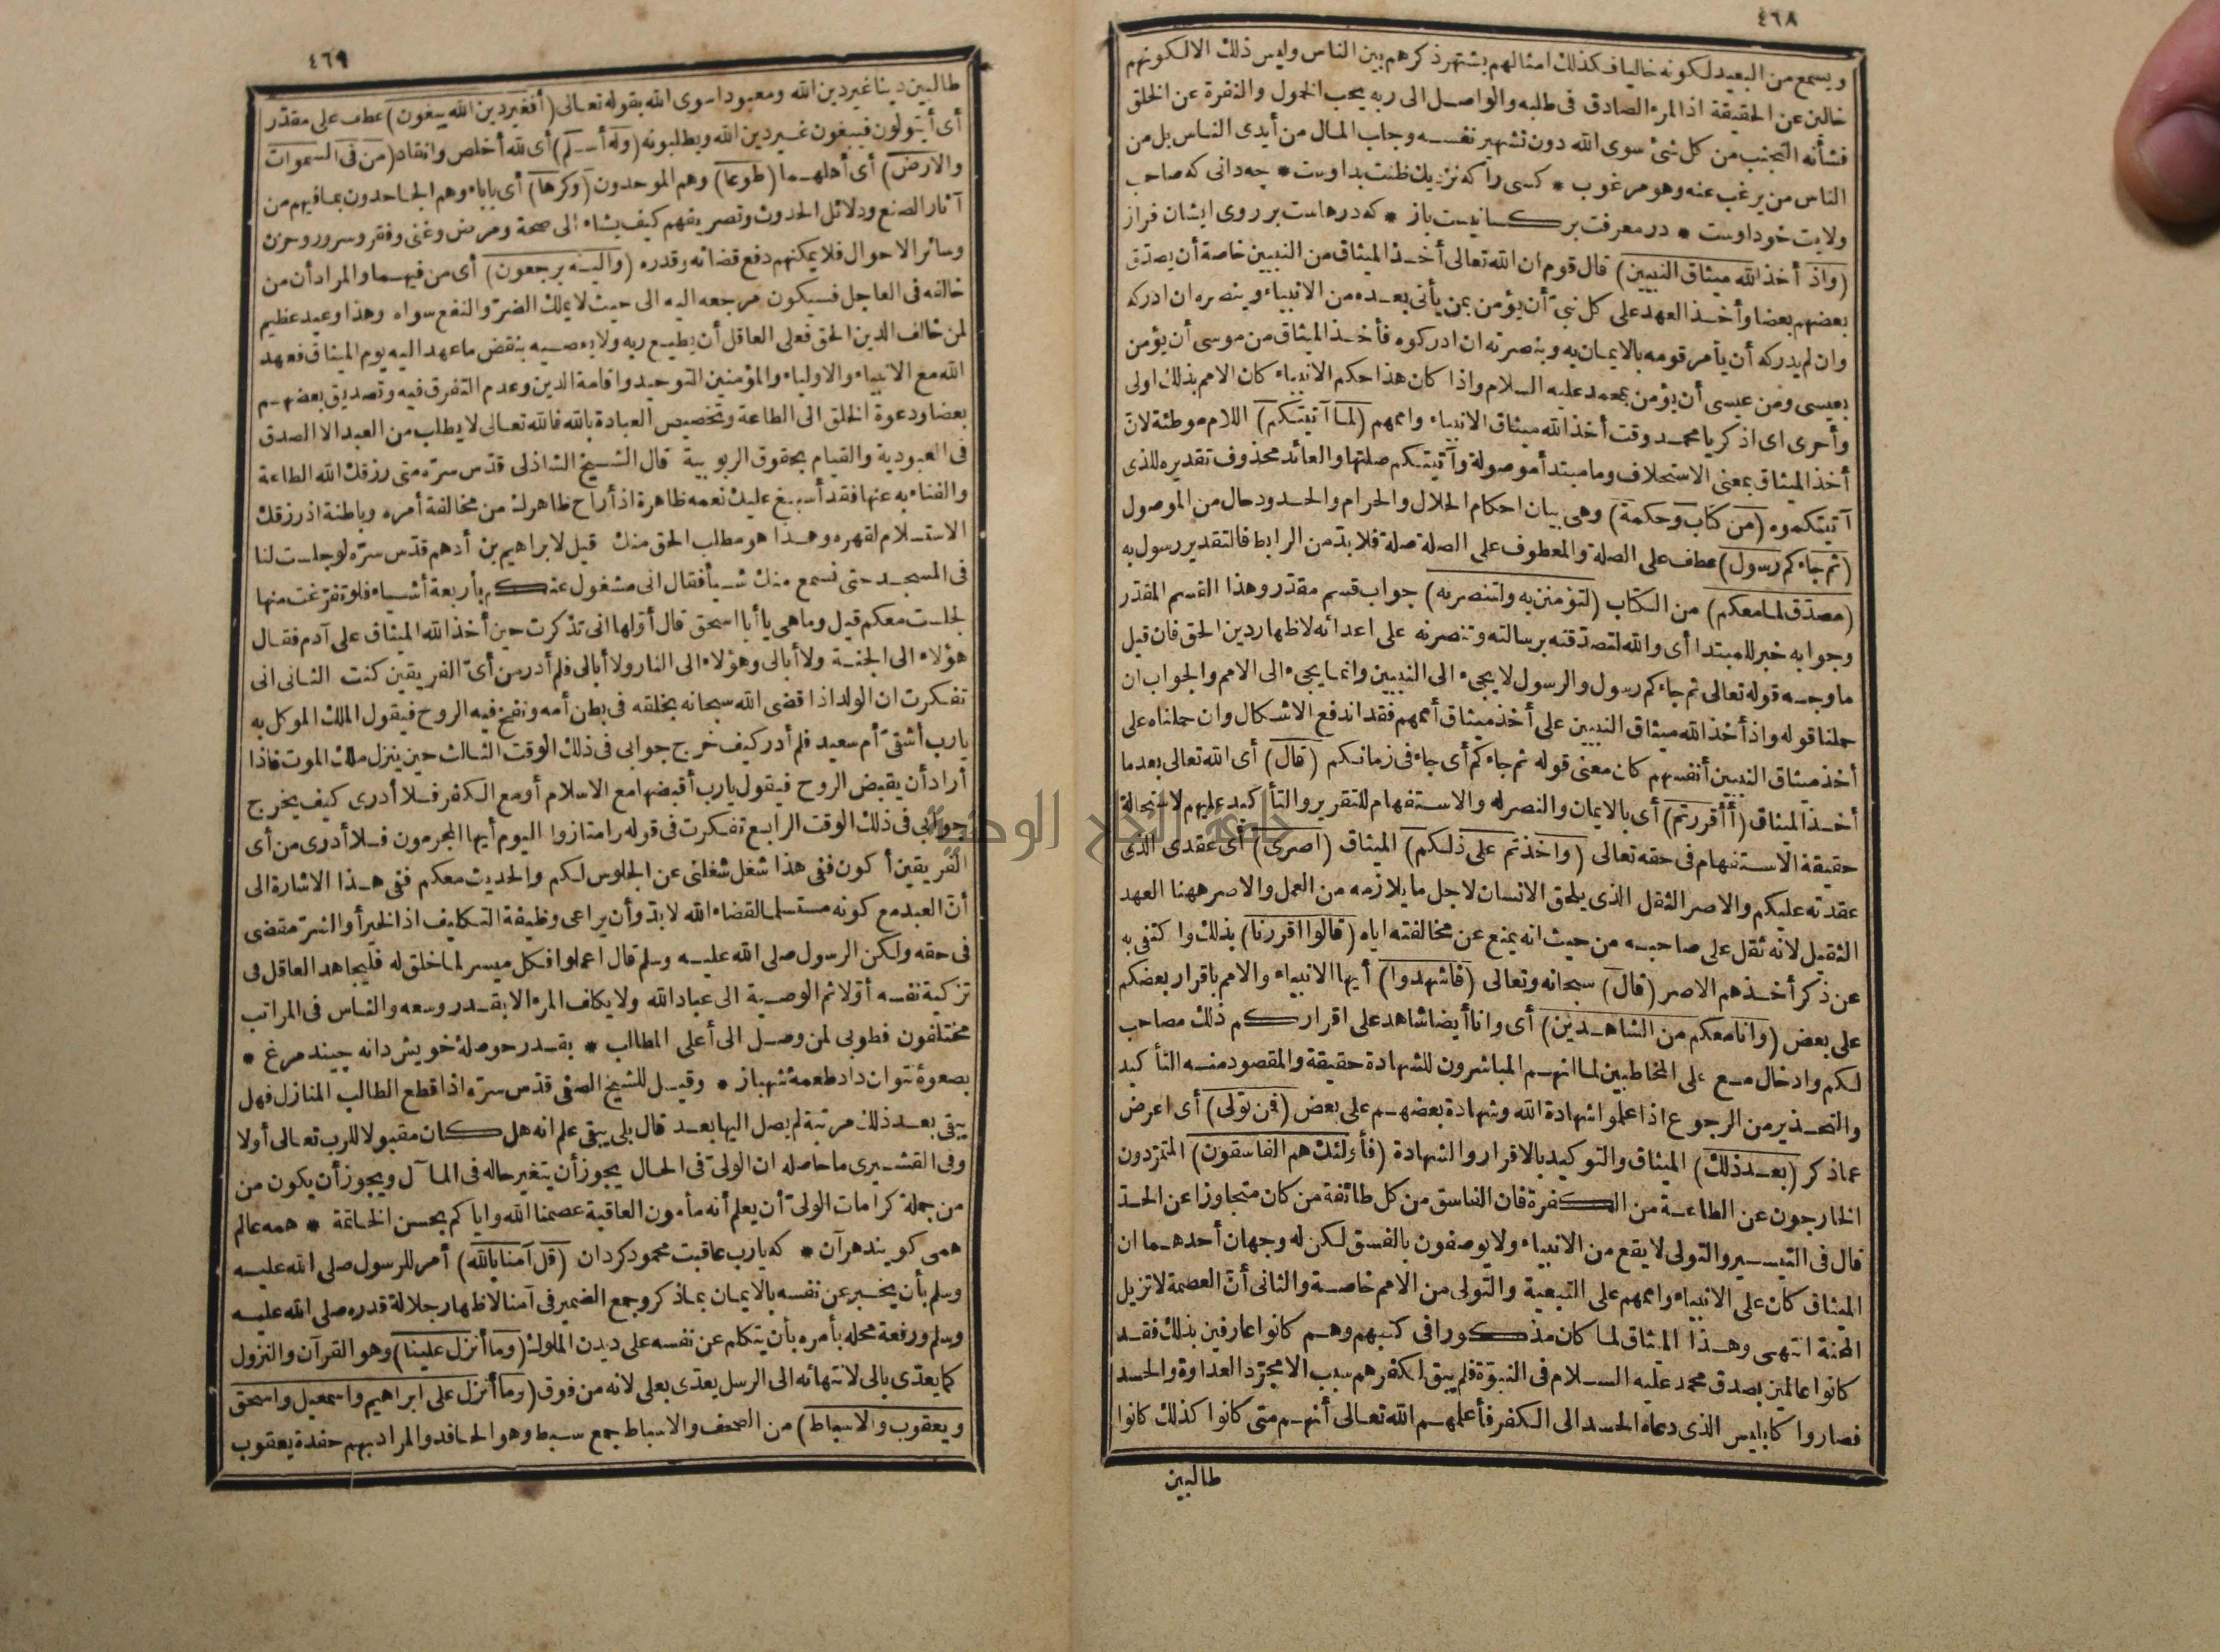 ٤٦٨
ويسمع من البعيد لكونه خاليا فكذلك امثالهم يشتهر ذكرهم بين الناس وليس ذلك الا لكونهم
خالين عن الحقيقة اذ المرء الصادق فى طلبه والواصل الى ربه يحب الخمول والنفرة عن الخلق
فشأنه التجنب من كل شئ سوى الله دون تشهير نفسه وجلب المال من أيدى الناس بل من
الناس من يرغب عنه وهو مرغوب * كسى را كه نزديك ظنت بد اوست * چه دانى كه صاحب
ولايت خود اوست * در معرفت بر كسانيست باز * كه درهاست بر روى ايشان فراز
(واذ أخذ الله ميثاق النبيين) قال قوم ان الله تعالى أخذ الميثاق من النبيين خاصة أن يصدّق
بعضهم بعضا وأخذ العهد على كل نبىّ أن يؤمن بمن يأتى بعده من الانبياء وينصره ان ادركه
وان لم يدركه أن يأمر قومه بالايمان به وبنصرته ان ادركوه فأخذ الميثاق من موسى أن يؤمن
بعيسى ومن عيسى أن يؤمن بمحمد عليه السلام واذا كان هذا حكم الانبياء كان الامم بذلك اولى
وأحرى اى اذكر يا محمد وقت أخذ الله ميثاق الانبياء واممهم (لما آتيتكم) اللام موطئة لان
أخذ الميثاق بمعنى الاستحلاف وما مبتدأ موصولة وآتيتكم صلتها والعائد محذوف تقديره للذى
آتيتكموه (من كتاب وحكمة) وهى بيان احكام الحلال والحرام والحدود حال من الموصول
(ثم جاءكم رسول) عطف على الصلة والمعطوف على الصلة صلة فلا بدّ من الرابط فالتقدير رسول به
(مصدّق لما معكم) من الكتاب (لتؤمننّ به ولتنصرنه) جواب قسم مقدّر وهذا القسم المقدّر
وجوابه خبر للمبتدا أى والله لتصدّقنه برسالته وتنصرنه على اعدائه لاظهار دين الحق فان قيل
ما وجه قوله تعالى ثم جاءكم رسول والرسول لا يجىء الى النبيين وانما يجىء الى الامم والجواب ان
حملنا قوله واذ أخذ الله ميثاق النبيين على أخذ ميثاق أممهم فقد اندفع الاشكال وان حملناه على
أخذ ميثاق النبيين أنفسهم كان معنى قوله ثم جاءكم أى جاء فى زمانكم (قال) أى الله تعالى بعد ما
أخذ الميثاق (أأقررتم) أى بالايمان والنصر له والاستفهام للتقرير والتأكيد عليهم لاستحالة
حقيقة الاستفهام فى حقه تعالى (واخذتم على ذلكم) الميثاق (اصرى) أى عقدى الذى
عقدته عليكم والاصر الثقل الذى يلحق الانسان لاجل ما يلازمه من العمل والاصر ههنا العهد
الثقيل لانه ثقل على صاحبه من حيث انه يمنع عن مخالفته اياه (قالوا اقررنا) بذلك واكتفى به
عن ذكر أخذهم الاصر (قال) سبحانه وتعالى (فاشهدوا) أيها الانبياء والامم باقرار بعضكم
على بعض (وانا معكم من الشاهدين) أى وانا أيضا شاهد على اقراركم ذلك مصاحب
لكم وادخال مع على المخاطبين لما انهم المباشرون للشهادة حقيقة والمقصود منه التأكيد
والتحذير من الرجوع اذا علموا شهادة الله وشهادة بعضهم على بعض (فمن تولى) أى اعرض
عما ذكر (بعد ذلك) الميثاق والتوكيد بالاقرار والشهادة (فأولئك هم الفاسقون) المتمرّدون
الخارجون عن الطاعة من الكفرة فان الفاسق من كل طائفة من كان متجاوزا عن الحدّ
قال فى التيسير والتولى لا يقع من الانبياء ولا يوصفون بالفسق لكن له وجهان أحدهما ان
الميثاق كان على الانبياء واممهم على التبعية والتولى من الامم خاصة والثانى أنّ العصمة لا تزيل
المحنة انتهى وهذا الميثاق لما كان مذكورا فى كتبهم وهم كانوا عارفين بذلك فقد
كانوا عالمين بصدق محمد عليه السلام فى النبوّة فلم يبق لكفرهم سبب الا مجرّد العداوة والحسد
فصاروا كابليس الذى دعاه الحسد الى الكفر فأعلمهم الله تعالى أنهم متى كانوا كذلك كانوا
طالبين
٤٦٩
طالبين دينا غير دين الله ومعبودا سوى الله بقوله تعالى (أفغير دين الله يبغون) عطف على مقدّر
أى أيتولون فيبغون غير دين الله ويطلبونه (وله أسلم) أى لله أخلص وانقاد (من فى السموات
والارض) أى أهلهما (طوعا) وهم الموحدون (وكرها) أى باباء وهم الجاحدون بما فيهم من
آثار الصنع ودلائل الحدوث وتصريفهم كيف يشاء الى صحة ومرض وغنى وفقر وسرور وحزن
وسائر الاحوال فلا يمكنهم دفع قضائه وقدره (واليه يرجعون) أى من فيهما والمراد أن من
خالفه فى العاجل فسيكون مرجعه اليه الى حيث لا يملك الضرّ والنفع سواه وهذا وعيد عظيم
لمن خالف الدين الحق فعلى العاقل أن يطيع ربه ولا يعصيه بنقض ما عهد اليه يوم الميثاق فعهد
الله مع الانبياء والاولياء والمؤمنين التوحيد واقامة الدين وعدم التفرق فيه وتصديق بعضهم
بعضا ودعوة الخلق الى الطاعة وتخصيص العبادة بالله فالله تعالى لا يطلب من العبد الا الصدق
فى العبودية والقيام بحقوق الربوبية قال الشيخ الشاذلى قدّس سرّه متى رزقك الله الطاعة
والفناء به عنها فقد أسبغ عليك نعمه ظاهرة اذ أراح ظاهرك من مخالفة أمره وباطنة اذ رزقك
الاستسلام لقهره وهذا هو مطلب الحق منك قيل لابراهيم بن أدهم قدّس سرّه لو جلست لنا
فى المسجد حتى نسمع منك شيأ فقال انى مشغول عنكم بأربعة أشياء فلو تفرّغت منها
لجلست معكم قيل وما هى يا أبا اسحق قال أوّلها انى تذكرت حين أخذ الله الميثاق على آدم فقال
هؤلاء الى الجنة ولا أبالى وهؤلاء الى النار ولا أبالى فلم أدر من أىّ الفريقين كنت الثانى انى
تفكرت ان الولد اذا قضى الله سبحانه بخلقه فى بطن أمه ونفخ فيه الروح فيقول الملك الموكل به
يا رب أشقىّ أم سعيد فلم أدر كيف خرج جوابى فى ذلك الوقت الثالث حين ينزل ملك الموت فاذا
أراد أن يقبض الروح فيقول يا رب أقبضها مع الاسلام أو مع الكفر فلا أدرى كيف يخرج
جوابى فى ذلك الوقت الرابع تفكرت فى قوله وامتازوا اليوم أيها المجرمون فلا أدرى من أى
الفريقين أكون ففى هذا شغل شغلنى عن الجلوس لكم والحديث معكم ففى هذا الاشارة الى
أنّ العبد مع كونه مستسلما لقضاء الله لا بدّ وأن يراعى وظيفة التكاليف اذ الخير أو الشرّ مقضى
فى حقه ولكن الرسول صلى الله عليه وسلم قال اعملوا فكل ميسر لما خلق له فليجاهد العاقل فى
تزكية نفسه أوّلا ثم الوصية الى عباد الله ولا يكلف المرء الا بقدر وسعه والناس فى المراتب
مختلفون فطوبى لمن وصل الى أعلى المطالب * بقدر حوصلهٔ خويش دانه چيند مرغ *
بصعوه نتوان داد طعمهٔ شهباز * وقيل للشيخ الصفى قدّس سرّه اذا قطع الطالب المنازل فهل
يبقى بعد ذلك مرتبة لم يصل اليها بعد قال بلى يبقى علم انه هل كان مقبولا للرب تعالى أولا
وفى القشيرى ما حاصله ان الولىّ فى الحال يجوز أن يتغير حاله فى المآل ويجوز أن يكون من
من جملة كرامات الولىّ أن يعلم أنه مأمون العاقبة عصمنا الله واياكم بحسن الخاتمة * همه عالم
همى كويند هر آن * كه يارب عاقبت محمود كردان (قل آمنا بالله) أمر للرسول صلى الله عليه
وسلم بأن يخبر عن نفسه بالايمان بما ذكر وجمع الضمير فى آمنا لاظهار جلالة قدره صلى الله عليه
وسلم ورفعة محله بأمره بأن يتكلم عن نفسه على ديدن الملوك (وما أنزل علينا) وهو القرآن والنزول
كما يعدّى بالى لانتهائه الى الرسل يعدّى بعلى لانه من فوق (وما أنزل على ابراهيم واسمعيل واسحق
ويعقوب والاسباط) من الصحف والاسباط جمع سبط وهو الحافد والمراد بهم حفدة يعقوب